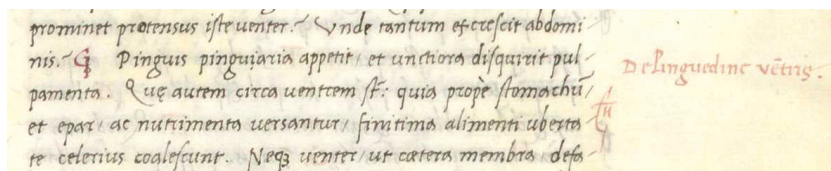 prominet protensus iste venter. Vnde tantum excrescit abdomi
nis. Pinguis pinguiaria appetit, et unctiora disquirit pul-
pamenta. Quę autem circa ventrem st̄: quia propè stomachū
et epar, ac nutrimenta versantur, finitima alimenti uberta
te celerius coalescunt. Neqꝫ uenter, ut cætera membra defa-
De Pinguedine vētris.